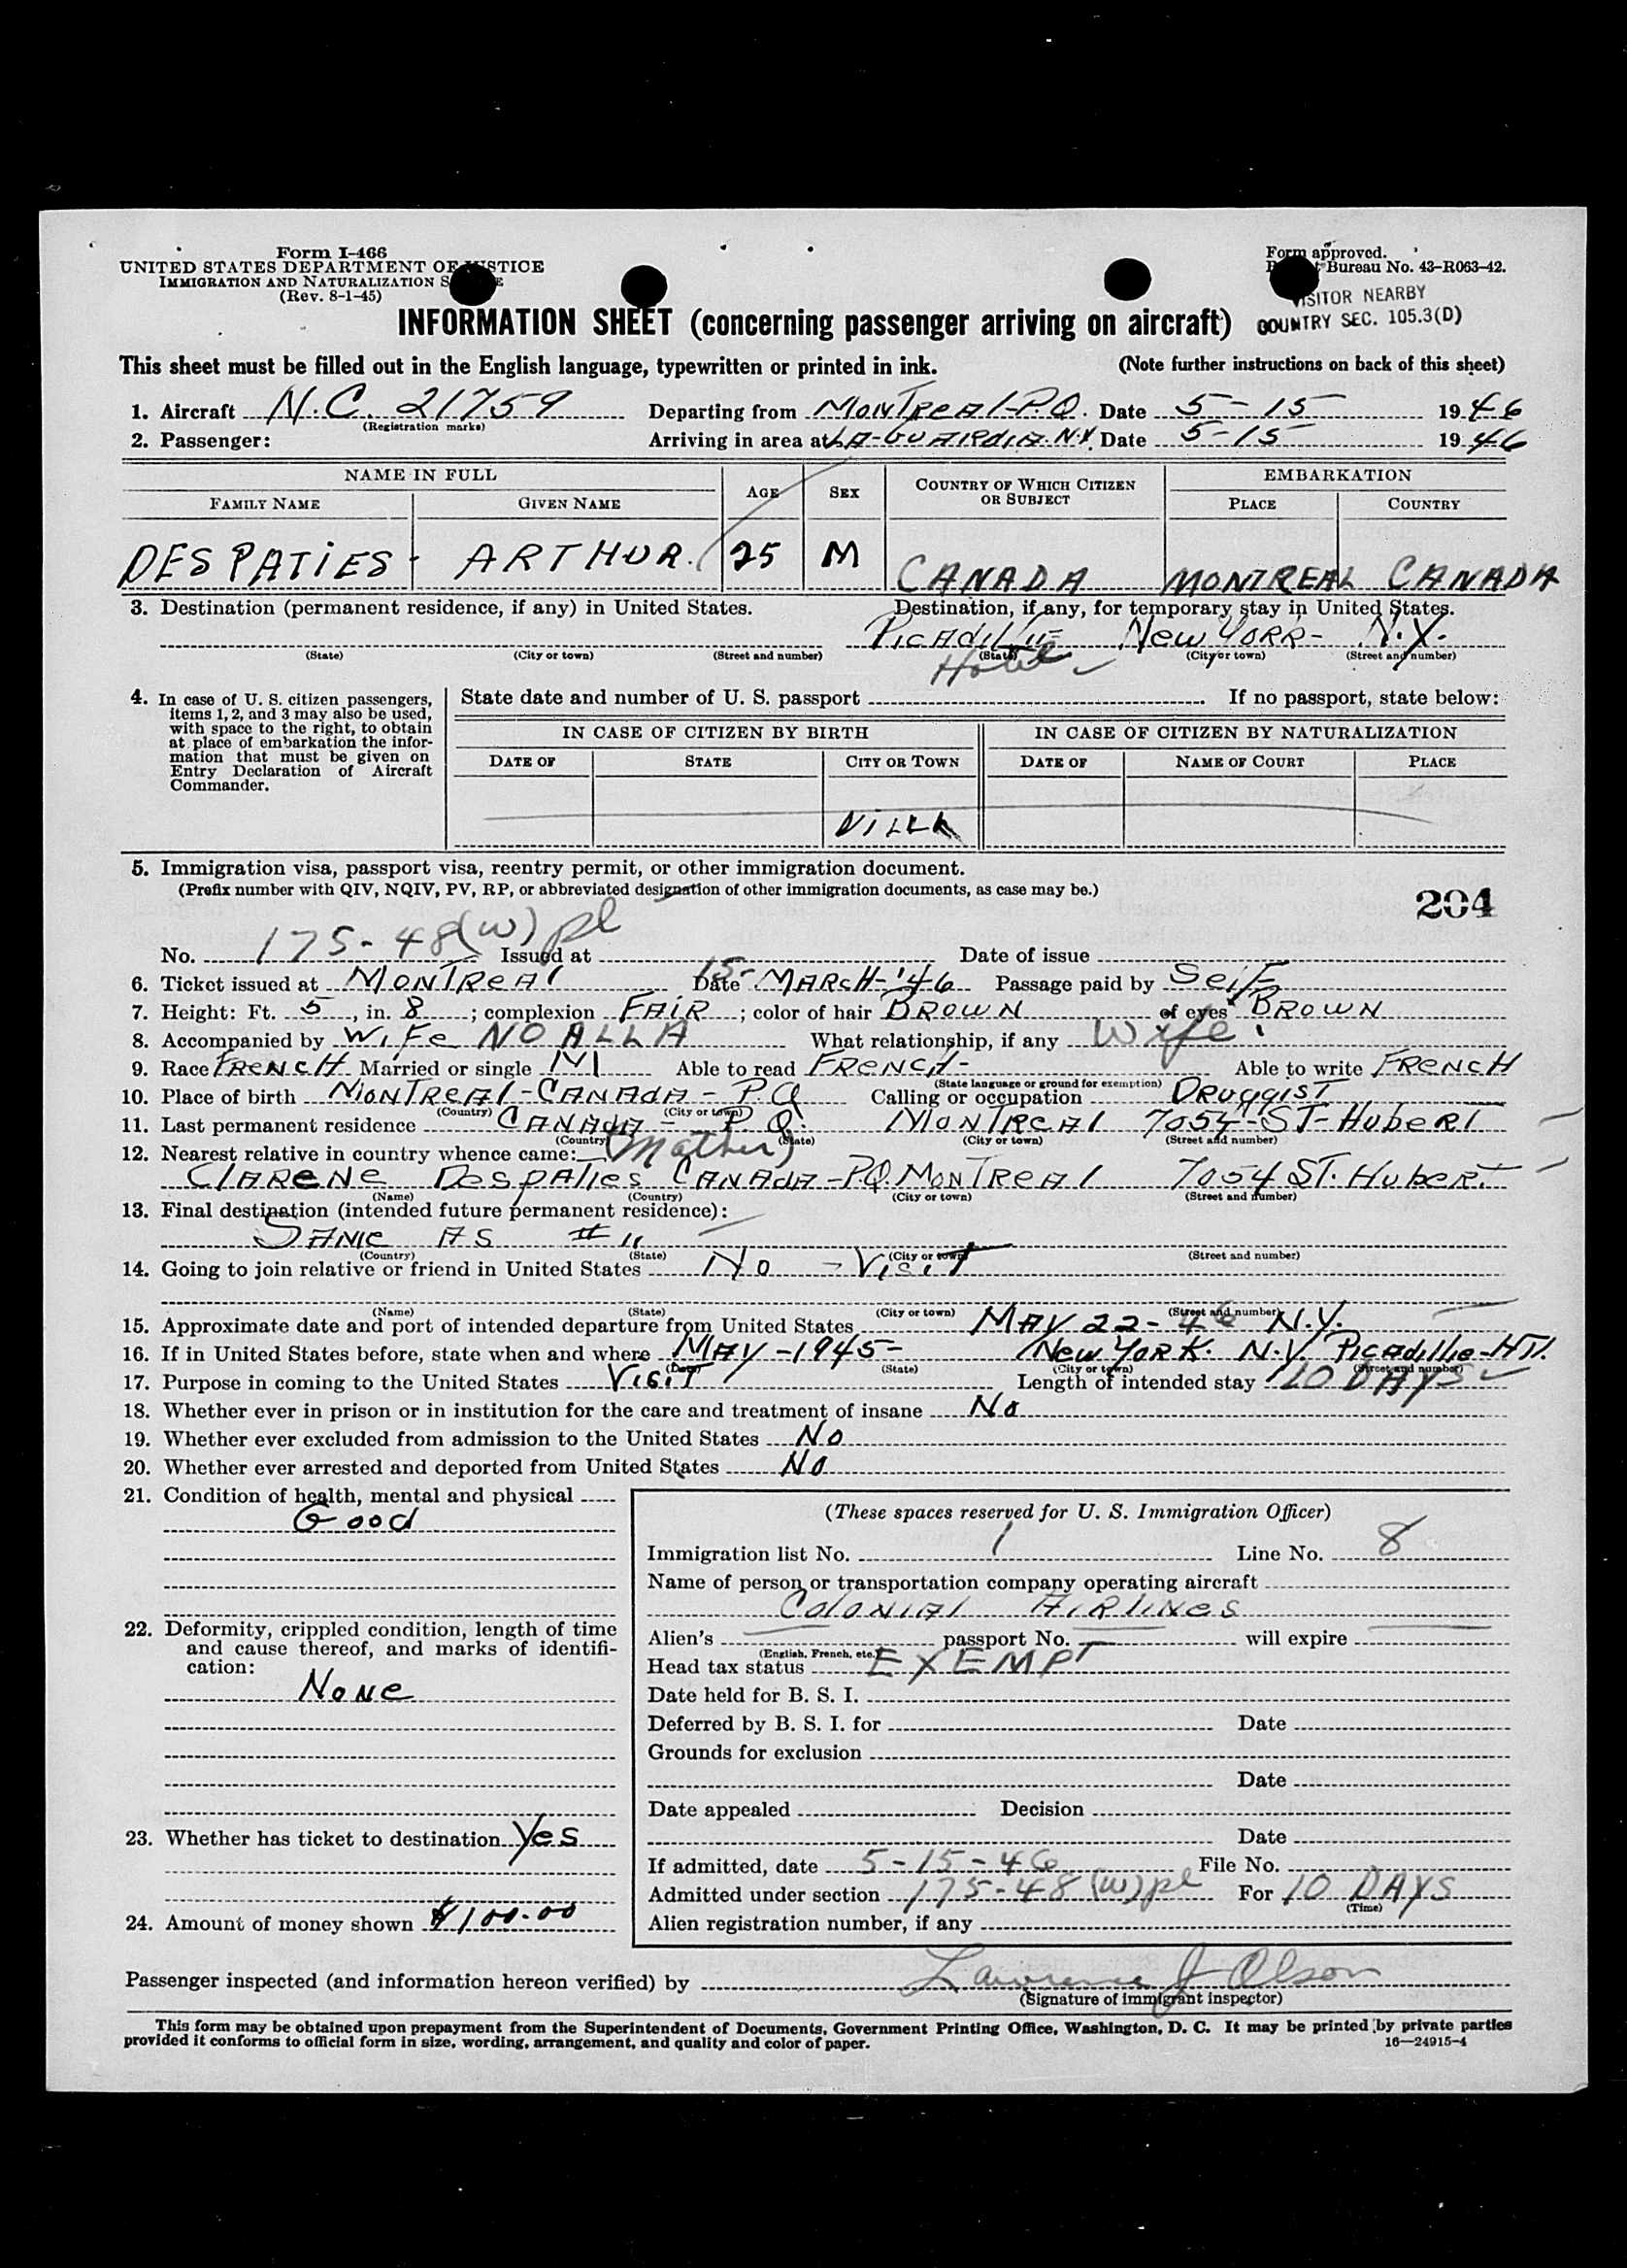 Form I-466
UNITED STATES DEPARTMENT OF JUSTICE
IMMIGRATION AND NATURALIZATION S E
(Rev. 8-1-45)
Form approved.
B t Bureau No. 43-R063-42.
VISITOR NEARBY
COUNTRY SEC. 105.3(D)
INFORMATION SHEET (concerning passenger arriving on aircraft)
This sheet must be filled out in the English language, typewritten or printed in ink. (Note further instructions on back of this sheet)
1. Aircraft N.C. 21759 Departing from MONTREAL-P.Q. Date 5-15 1946
(Registration marks)
2. Passenger: Arriving in area at LA-GUARDIA. N.Y. Date 5-15 1946
NAME IN FULL AGE SEX COUNTRY OF WHICH CITIZEN OR SUBJECT EMBARKATION
FAMILY NAME GIVEN NAME PLACE COUNTRY
DESPATIES ARTHUR. 25 M CANADA MONTREAL CANADA
3. Destination (permanent residence, if any) in United States. Destination, if any, for temporary stay in United States.
New YORK- N.Y.
(State) (City or town) (Street and number) (State) (City or town) (Street and number)
Hotel
4. In case of U. S. citizen passengers, items 1, 2, and 3 may also be used, with space to the right, to obtain at place of embarkation the information that must be given on Entry Declaration of Aircraft Commander.
State date and number of U. S. passport If no passport, state below:
IN CASE OF CITIZEN BY BIRTH IN CASE OF CITIZEN BY NATURALIZATION
DATE OF STATE CITY OR TOWN DATE OF NAME OF COURT PLACE
5. Immigration visa, passport visa, reentry permit, or other immigration document.
(Prefix number with QIV, NQIV, PV, RP, or abbreviated designation of other immigration documents, as case may be.)
204
No. 175-48(w) pl Issued at Date of issue
6. Ticket issued at MONTREAL Date 15-MARCH-'46 Passage paid by Self
7. Height: Ft. 5, in. 8; complexion FAIR; color of hair BROWN of eyes BROWN
8. Accompanied by WIFE NOALLA What relationship, if any Wife.
9. Race FRENCH Married or single M Able to read FRENCH- Able to write FRENCH
(State language or ground for exemption)
10. Place of birth MONTREAL-CANADA-P.Q Calling or occupation DRUGGIST
(Country) (City or town)
11. Last permanent residence CANADA- P.Q. MONTREAL 7054-ST-HUBERT
(Country) (State) (City or town) (Street and number)
12. Nearest relative in country whence came: (Mother)
CLARENE DESPATIES CANADA-P.Q. MONTREAL 7054 ST. HUBERT.
(Name) (Country) (City or town) (Street and number)
13. Final destination (intended future permanent residence):
SAME AS # 11
(Country) (State) (City or town) (Street and number)
14. Going to join relative or friend in United States NO - VISIT
(Name) (State) (City or town) (Street and number)
15. Approximate date and port of intended departure from United States MAY 22-46 N.Y.
16. If in United States before, state when and where MAY-1945- New YORK. N.Y. Picadillie-HTL.
(Date) (State) (City or town) (Street and number)
17. Purpose in coming to the United States VISIT Length of intended stay 10 DAYS
18. Whether ever in prison or in institution for the care and treatment of insane No
19. Whether ever excluded from admission to the United States No
20. Whether ever arrested and deported from United States No
21. Condition of health, mental and physical
Good
22. Deformity, crippled condition, length of time and cause thereof, and marks of identification:
None
23. Whether has ticket to destination Yes
24. Amount of money shown $100.00
(These spaces reserved for U. S. Immigration Officer)
Immigration list No. 1 Line No. 8
Name of person or transportation company operating aircraft
COLONIAL AIRLINES
Alien's passport No. will expire
(English, French, etc.)
Head tax status EXEMPT
Date held for B. S. I.
Deferred by B. S. I. for Date
Grounds for exclusion
Date
Date appealed Decision
Date
If admitted, date 5-15-46 File No.
Admitted under section 175-48(w) pl For 10 DAYS
(Time)
Alien registration number, if any
Passenger inspected (and information hereon verified) by Lawrence J Olson
(Signature of immigrant inspector)
This form may be obtained upon prepayment from the Superintendent of Documents, Government Printing Office, Washington, D. C. It may be printed by private parties
provided it conforms to official form in size, wording, arrangement, and quality and color of paper. 16—24915-4